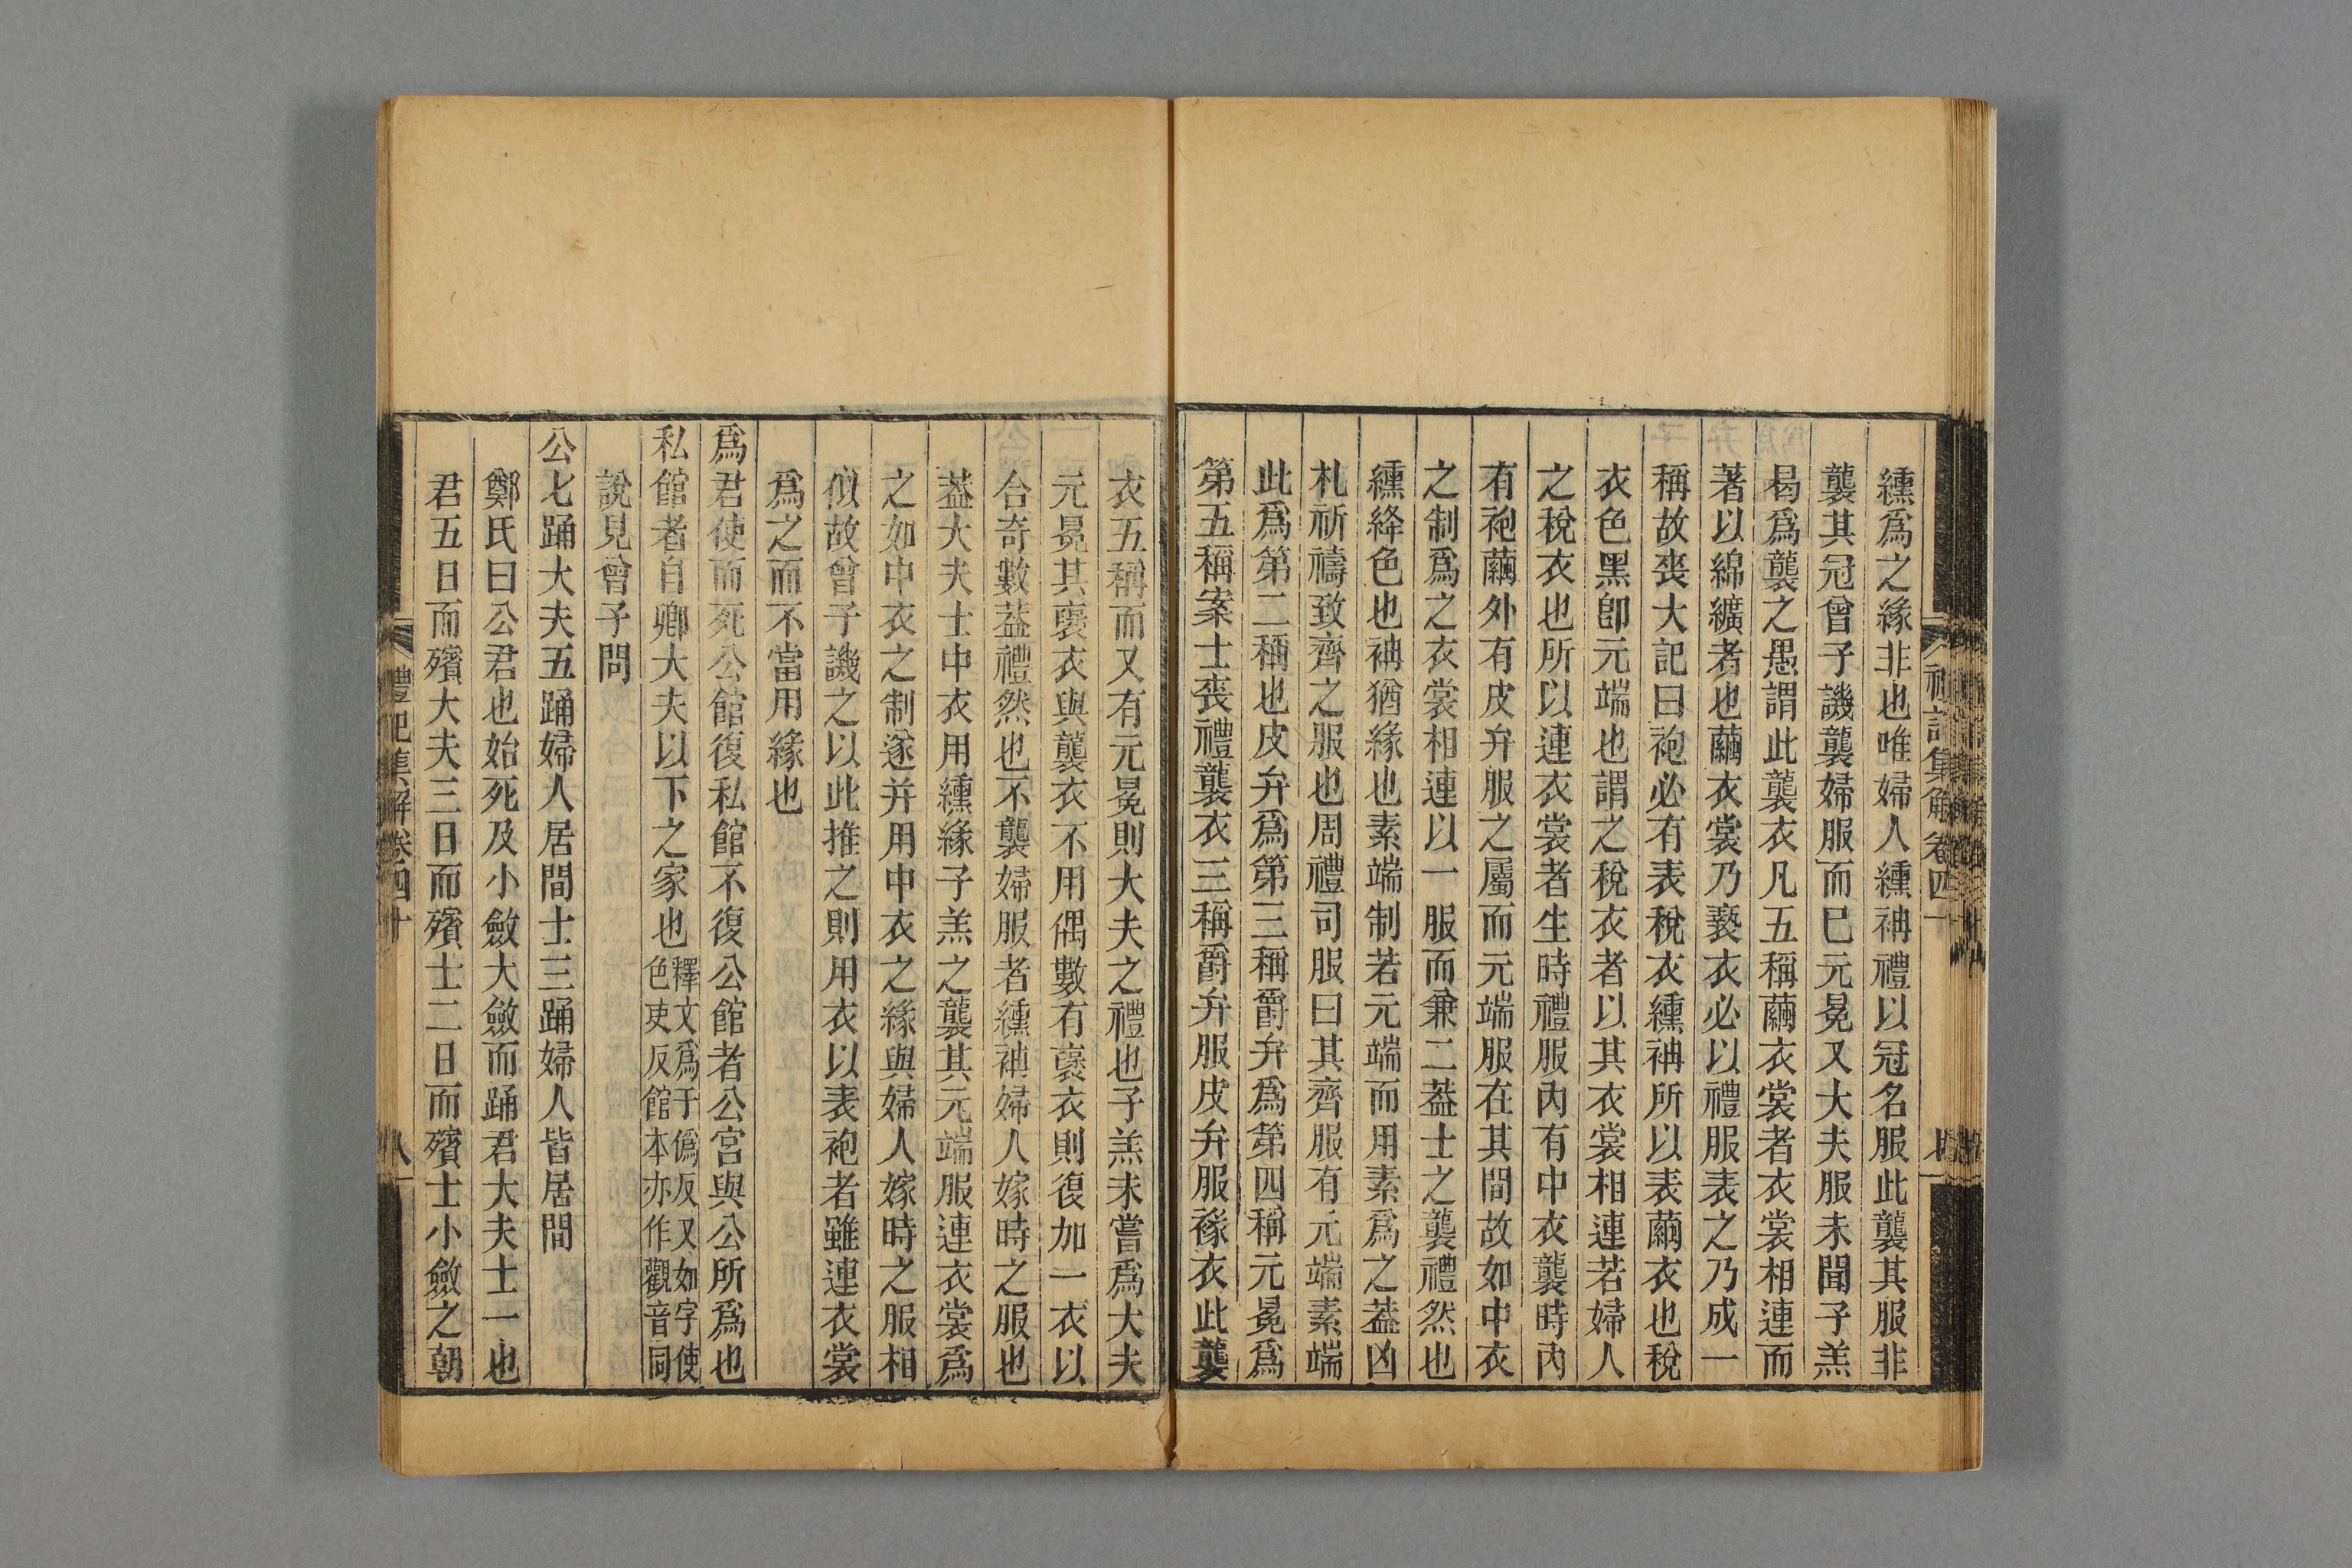 纁爲之緣非也唯婦人纁袡禮以冠名服此襲其服非
襲其冠曾子譏襲婦服而已元冕又大夫服未聞子羔
曷爲襲之愚謂此襲衣凡五稱繭衣裳者衣裳相連而
著以綿纊者也繭衣裳乃褻衣必以禮服表之乃成一
稱故喪大記曰袍必有表稅衣纁袡所以表繭衣也稅
衣色黑卽元端也謂之稅衣者以其衣裳相連若婦人
之稅衣也所以連衣裳者生時禮服內有中衣襲時內
有袍繭外有皮弁服之屬而元端服在其間故如中衣
之制爲之衣裳相連以一服而兼二葢士之襲禮然也
纁絳色也袡猶緣也素端制若元端而用素爲之葢凶
札祈禱致齊之服也周禮司服曰其齊服有元端素端
此爲第二稱也皮弁爲第三稱爵弁爲第四稱元冕爲
第五稱案士喪禮襲衣三稱爵弁服皮弁服褖衣此襲
衣五稱而又有元冕則大夫之禮也子羔未嘗爲大夫
元冕其褻衣與襲衣不用偶數有褻衣則復加一衣以
合奇數葢禮然也不襲婦服者纁袡婦人嫁時之服也
葢大夫士中衣用纁緣子羔之襲其元端服連衣裳爲
之如中衣之制遂并用中衣之緣與婦人嫁時之服相
似故曾子譏之以此推之則用衣以表袍者雖連衣裳
爲之而不當用緣也
爲君使而死公館復私館不復公館者公宮與公所爲也
私館者自卿大夫以下之家也釋文爲于僞反又如字使色吏反館本亦作觀音同
說見曾子問
公七踊大夫五踊婦人居間士三踊婦人皆居間
鄭氏曰公君也始死及小斂大斂而踊君大夫士一也
君五日而殯大夫三日而殯士二日而殯士小斂之朝
禮記集解卷四十
八